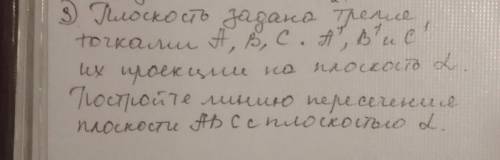 3) Плоскость задана тремя
точками A, B, C. A¹, B¹ и C¹
их проекции на плоскость α.
Постройте линию пересечения
плоскости ABC с плоскостью α.